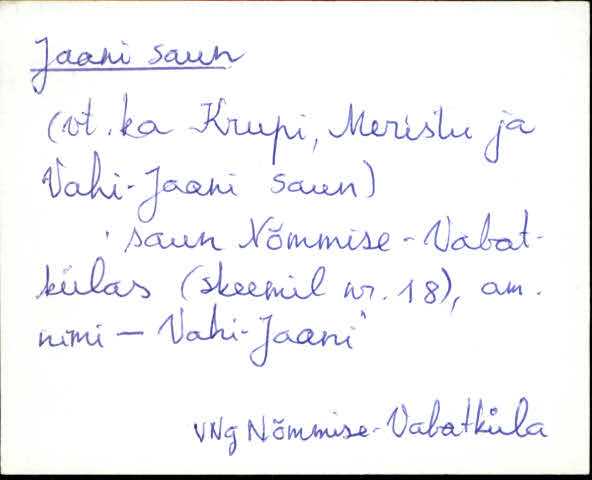 Jaani saun
(vt. ka Krupi, Meristu ja
Vahi-Jaani saun)
'saun Nõmmise-Vabat-
külas (skeemil nr. 18), am.
nimi – Vahi-Jaani'
VNg Nõmmise-Vabatküla